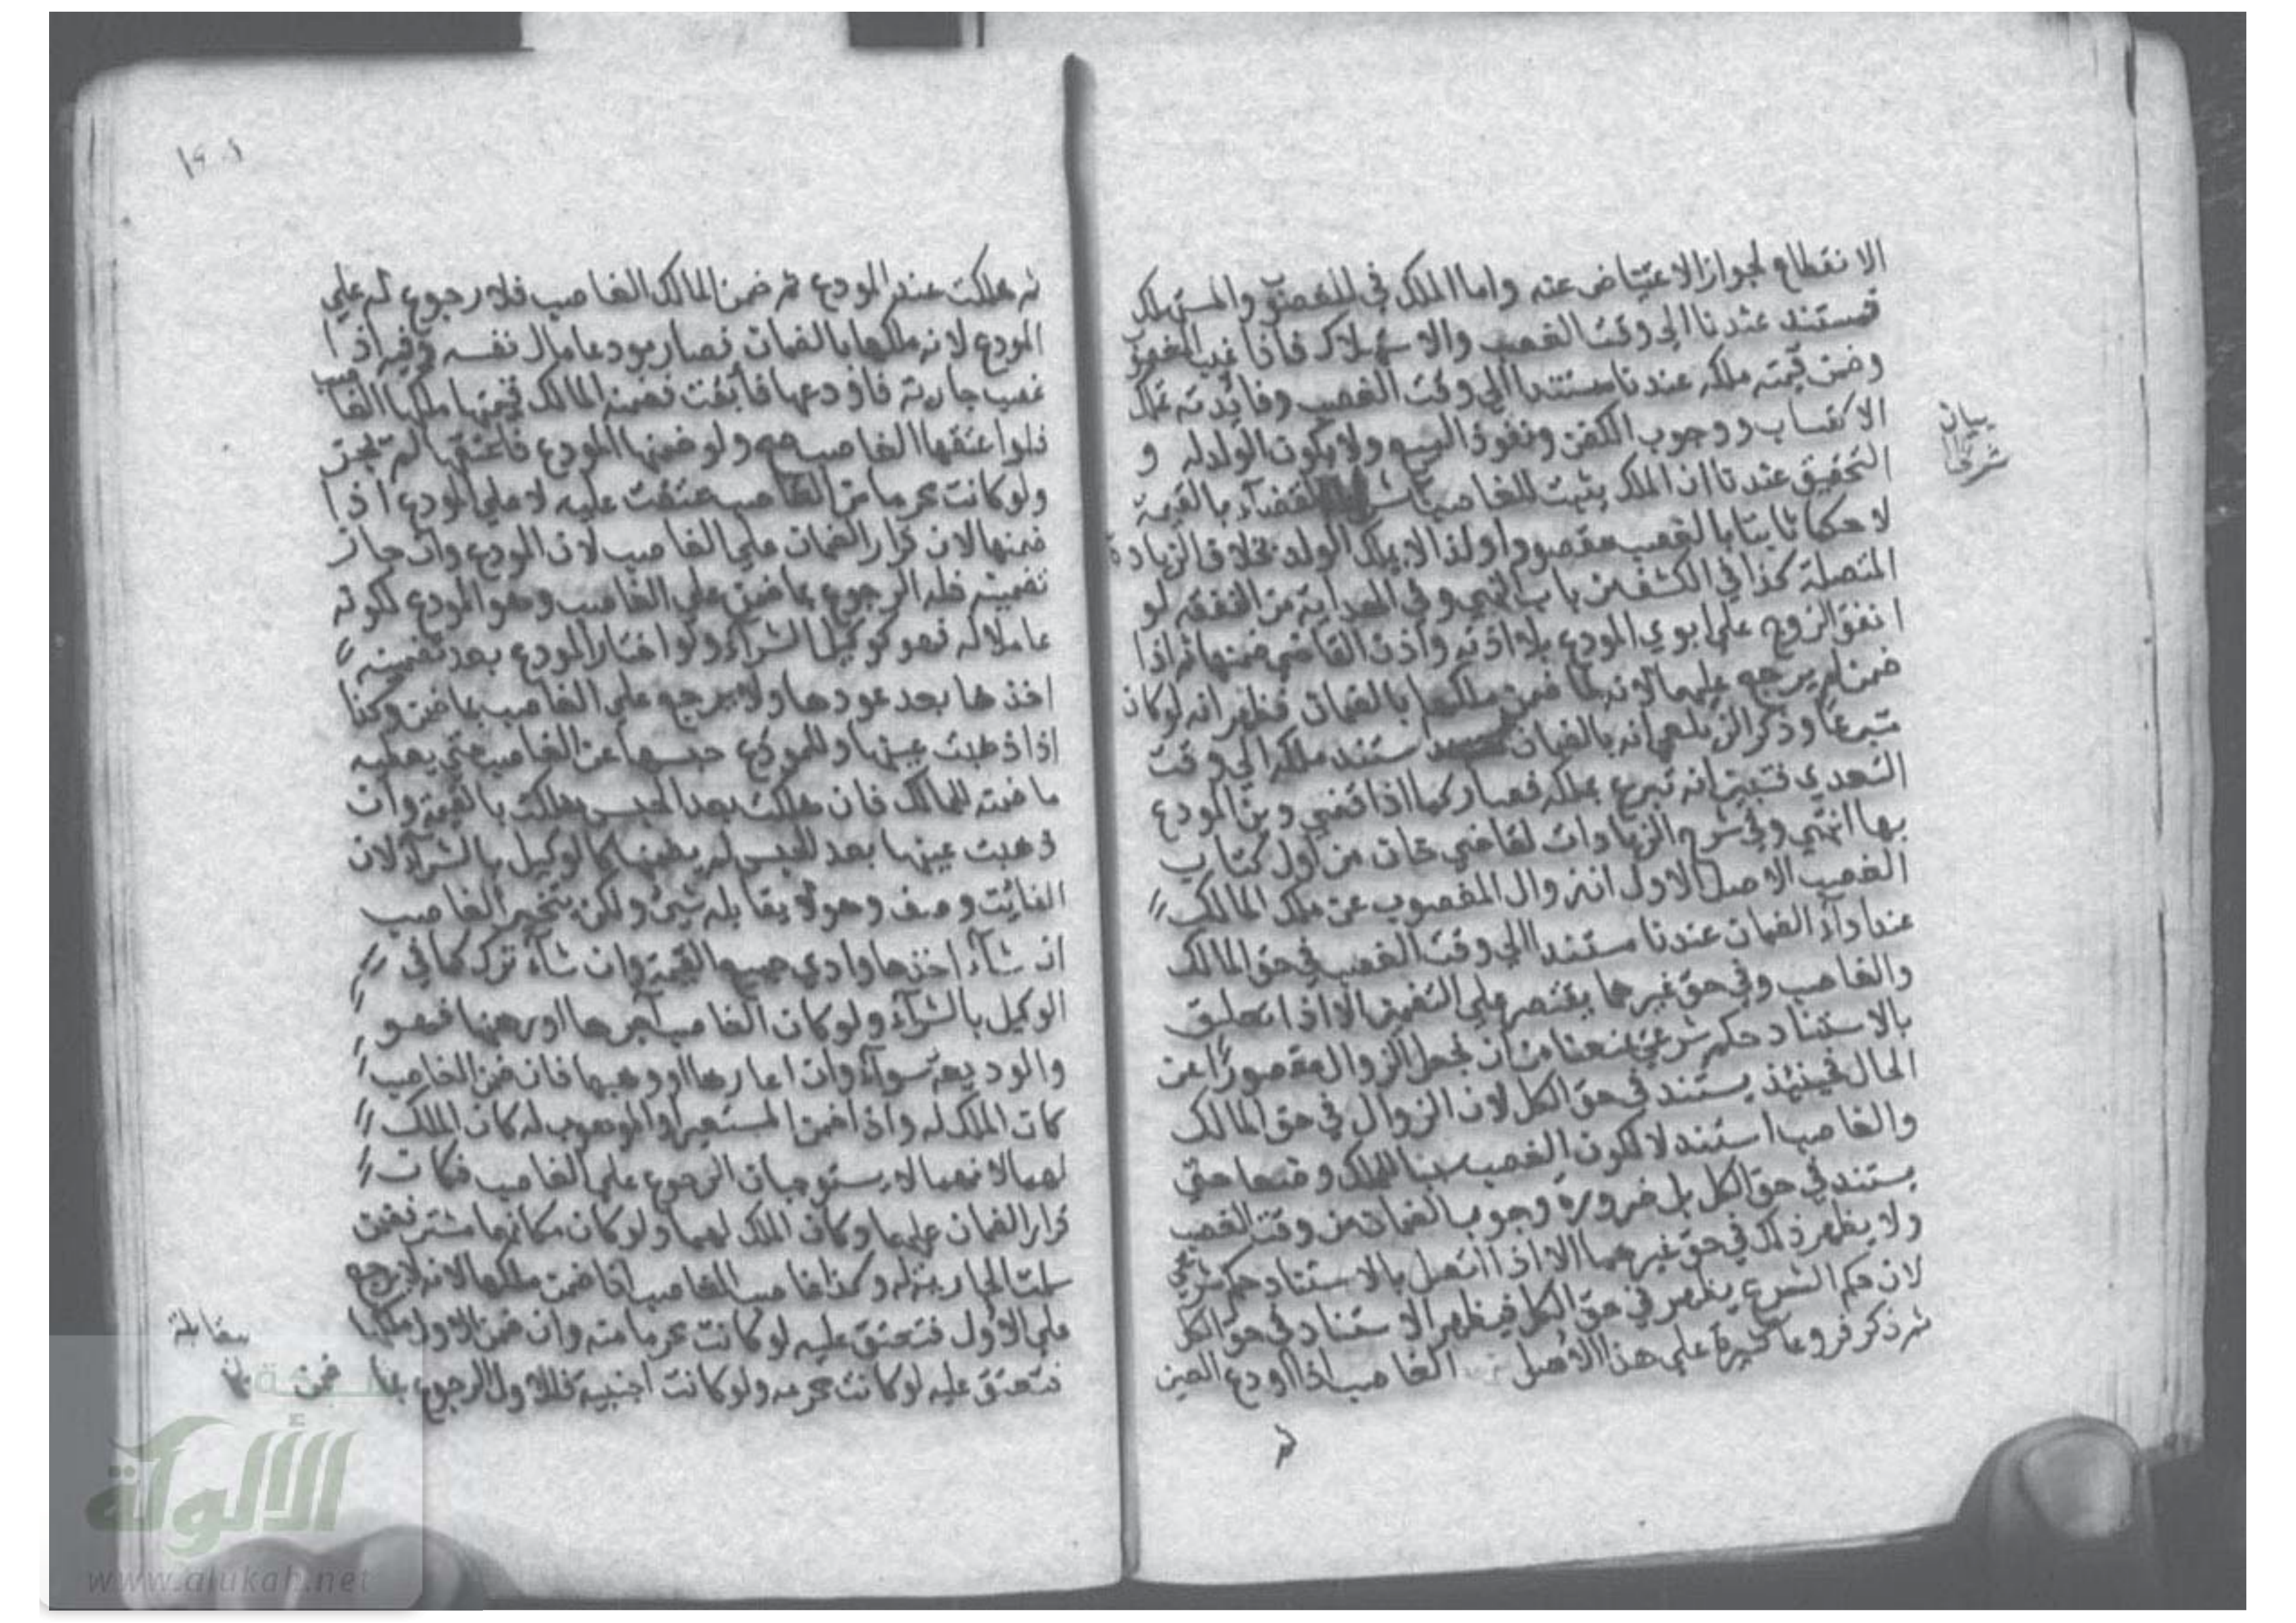 الانقطاع لجواز الاعتياض عنه واما الملك في المغصوب والمستهلك
فمستند عندنا الى وقت الغصب والاستهلاك فاذا غيب المغصوب
وضمن قيمته ملكه عندنا مستندا الي وقت الغصب وفائدته تملك
الاكتساب ووجوب الكفن ونفوذ البيع ولا يكون الولد له و
التحقيق عندنا ان الملك يثبت للغاصب القضاء بالقيمة
لا حكما ثابتا بالغصب مقصودا ولذا لا يملك الولد بخلاف الزيادة
المتصلة كذا في الكشف من باب النهي وفي الهداية من النفقة لو
انفق المودع علي ابوي المودع بلا اذنه واذن القاضي ضمنها ثم اذا
ضمن لم يرجع عليهما لانه لما ضمن ملكها بالضمان فظهر انه لو كان
متبرعا وذكر الزيلعي انه بالضمان استند ملكه الي وقت
التعدي فتبين انه تبرع بملكه فصار كما اذا قضي دين المودع
بها انتهي وفي شرح الزيادات لقاضي خان من اول كتاب
الغصب الاصل الاول ان زوال المغصوب عن ملك المالك
عند اداء الضمان عندنا مستند الي وقت الغصب في حق المالك
والغاصب وفي حق غيرهما يقتصر علي التضمين الا اذا تعلق
بالاستناد حكم شرعي يمنعنا من ان نجعل الزوال مقصورا عن
الحال فحينئذ يستند في حق الكل لان الزوال في حق المالك
والغاصب استند لا لكون الغصب سببا للملك وضعا حتى
يستند في حق الكل بل ضرورة وجوب الضمان من وقت الغصب
ولا يظهر ذلك في حق غيرهما الا اذا اتصل بالاستناد حكم شرعي
لان حكم الشرع يظهر في حق الكل فيظهر الاستناد في حق الكل
ثم ذكر فروعا كثيرة علي هذا الاصل الغاصب اذا اودع العين
بيان
شريف
ثم هلكت عند المودع ثم ضمن المالك الغاصب فلا رجوع له علي
المودع لانه ملكها بالضمان فصار مودعا مال نفسه وفيه اذا
غصب جارية فاودعها فأبقت فضمنه المالك قيمتها ملكها الغاصب
فلو اعتقها الغاصب صح ولو ضمنها المودع فاعتقها لم تجز
ولو كانت محرما من الغاصب عتقت عليه لا علي المودع اذا
ضمنها لان قرار الضمان علي الغاصب لان المودع وان جاز
تضمينه فله الرجوع بما ضمن علي الغاصب وهو المودع لكونه
عاملا له فهو كوكيل الشراء ولو اختار المودع بعد تضمينه
اخذها بعد عودها ولا يرجع علي الغاصب بما ضمن وكذا
اذا ذهبت عينها وللمودع حبسها عن الغاصب حتى يعطيه
ما ضمنه للمالك فان هلكت بعد الحبس هلكت بالقيمة وان
ذهبت عينها بعد الحبس لم يضمنها كالوكيل بالشراء لان
الفائت وصف وهو لا يقابله شيء ولكن يتخير الغاصب
ان شاء اخذها وادي جميع القيمة وان شاء ترك كما في
الوكيل بالشراء ولو كان الغاصب آجرها او رهنها فهو
والوديعة سواء وان اعارها او وهبها فان ضمن الغاصب
كان الملك له واذا ضمن المستعير او الموهوب له كان الملك
لهما لانهما لا يستوجبان الرجوع علي الغاصب فكان
قرار الضمان عليهما وكان الملك لهما ولو كان مكانهما مشتر فضمن
سلمت الجارية له وكذا غاصب الغاصب اذا ضمن ملكها لانه لا يرجع
علي الاول فتعتق عليه لو كانت محرما منه وان ضمن الاول ملكها
فتعتق عليه لو كانت محرمه ولو كانت اجنبية فللاول الرجوع بما ضمن
بلغ
مقابلة
شبكة
الألوكة
www.alukah.net